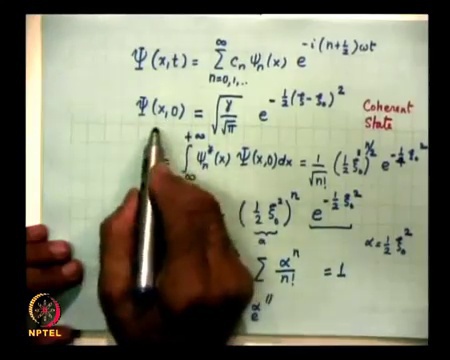 Ψ(x,t) = ∑ₙ₌₀,₁,..^∞ cₙ ψₙ(x) e^{-i(n+½)ωt}
Ψ(x,0) = √(γ/√π) e^{-½(ξ-ξ₀)²}
Coherent State
= ∫_{∞}^{+∞} ψₙ*(x) Ψ(x,0)dx = 1/√n! (½ ξ₀²)^{n/2} e^{-¼ξ₀²}
(½ ξ₀²)ⁿ e^{-½ξ₀²}
α
α = ½ ξ₀²
∑ αⁿ/n! = 1
e^α
NPTEL